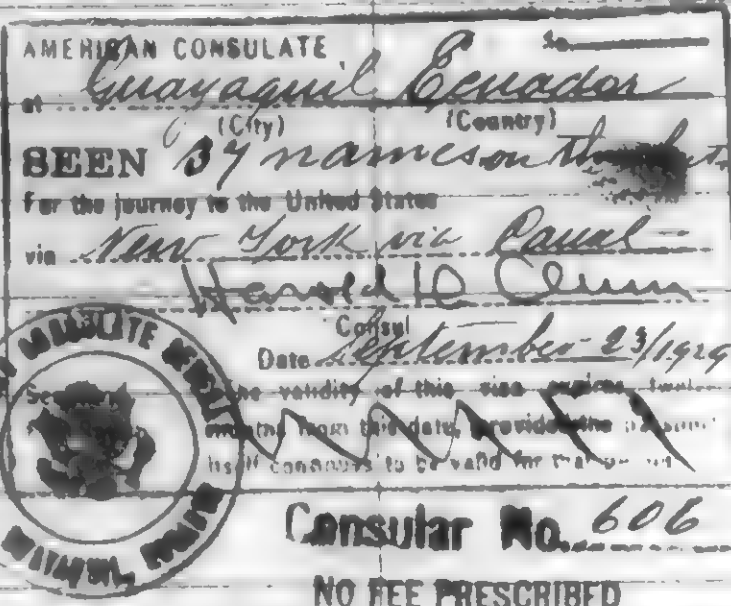 AMERICAN CONSULATE
at Guayaquil Ecuador
(City) (Country)
SEEN 37 names on
For the journey to the United States
via New York via Canal
Harold D Clum
Consul
Date September 23/1929
The validity of this visa expires twelve
months from this date, provided the passport
itself continues to be valid for that
Consular No. 606
NO FEE PRESCRIBED